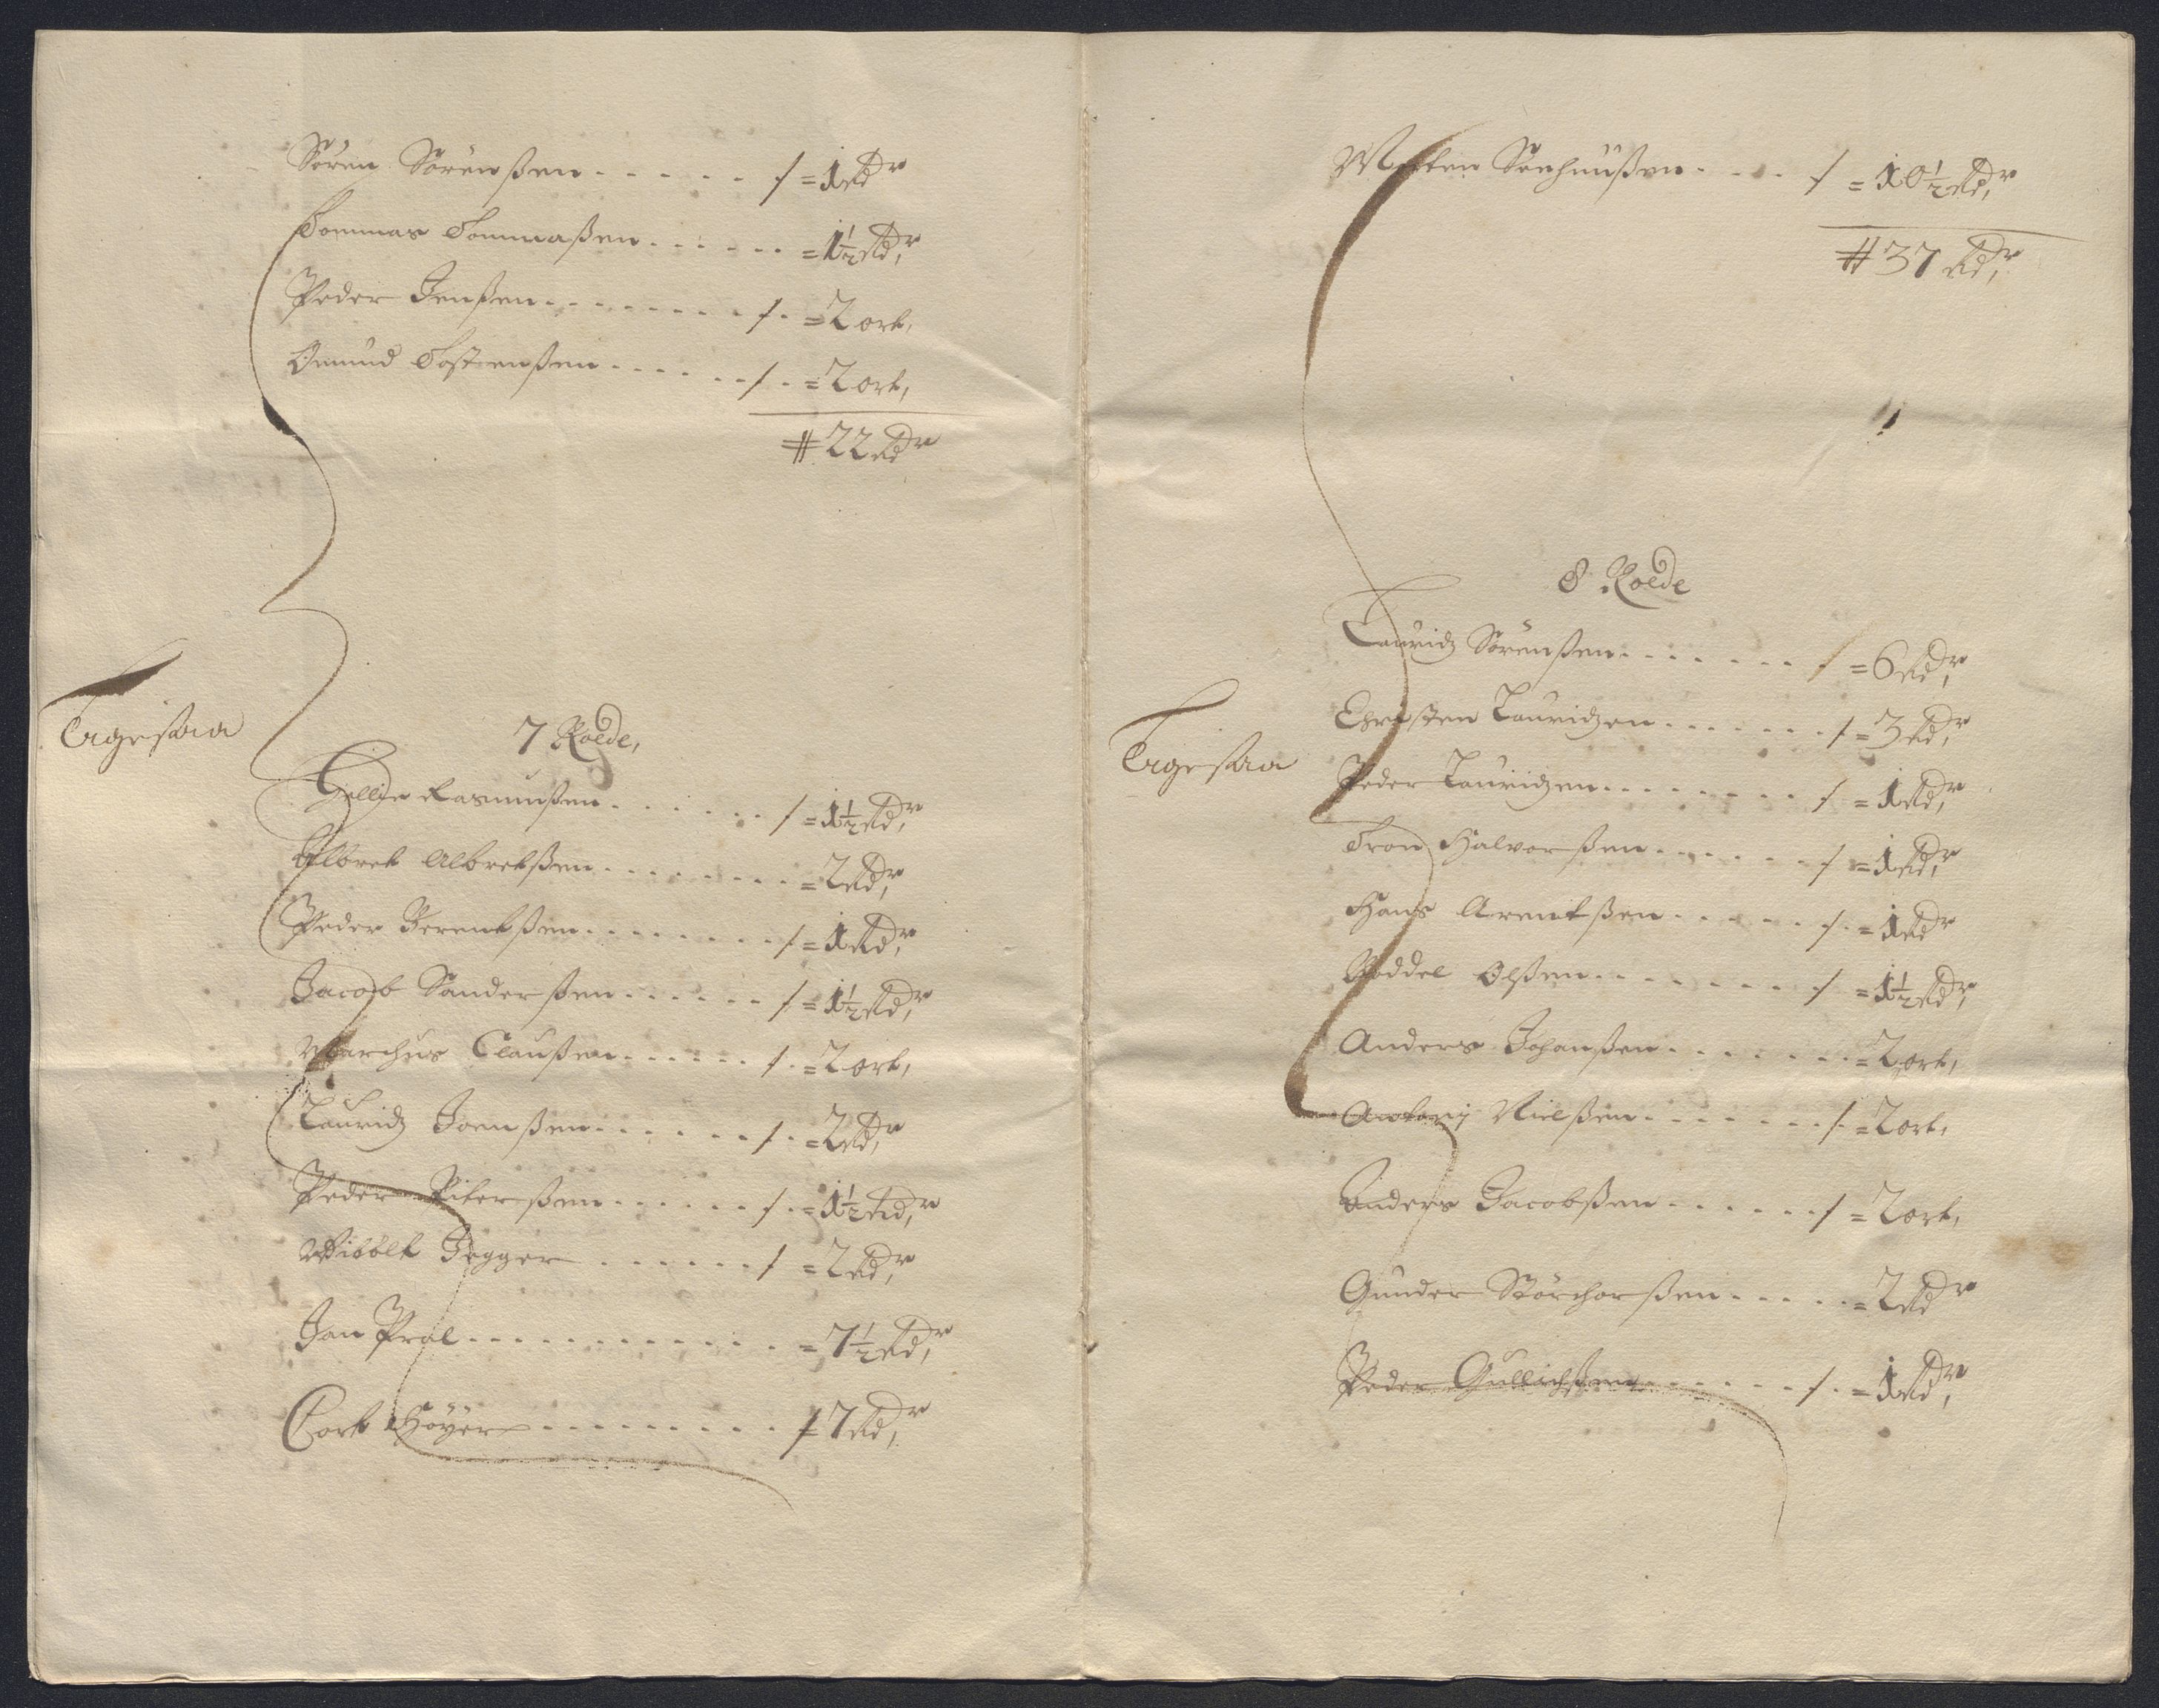 Sören Sörenßen . . . . . . = 1 Rdr
Tommas Tommaßen . . . . . . = 1½ Rdr,
Peder Jenßen . . . . . . . . = 2 ort,
Omund Tostenßen . . . . . . = 2 ort,
# 22 Rdr
7 Roede,
Gellge Rasmußen . . . . . . = 1½ Rdr,
Albret Albretßen . . . . . . . . = 2 Rdr,
Peder Berentßen . . . . . . . . = 1 Rdr,
Jacob Sanderßen . . . . . . = 1½ Rdr,
Marchus Claußen . . . . . . = 2 ort,
Lauridz Joenßen . . . . . . = 2 Rdr,
Peder Piterßen . . . . . . = 1½ Rdr,
Wibbelt Jegger . . . . . . = 2 Rdr,
Jan Pral . . . . . . . . . . . . = 7½ Rdr,
Cort Höyer . . . . . . . . . = 7 Rdr,
Morten Seehuußen . . . . = 10½ Rdr,
# 37 Rdr,
8 Roede
Lauridz Sörenßen . . . . . . . = 6 Rdr,
Christen Lauridzen . . . . . . . = 3 Rdr,
Peder Lauridzen . . . . . . . . = 1 Rdr,
Tron Halvorßen . . . . . . . = 1 Rdr,
Hans Arentßen . . . . . . = 1 Rdr
Boddel Olßen . . . . . . . . = 1½ Rdr,
Anders Johanßen . . . . . . . = 2 ort,
Antoni Nielßen . . . . . . . = 2 ort,
Anders Jacobßen . . . . . . = 2 ort,
Gunder Störchorßen . . . . . = 2 Rdr
Peder Gullichßen . . . . . . . = 1 Rdr,